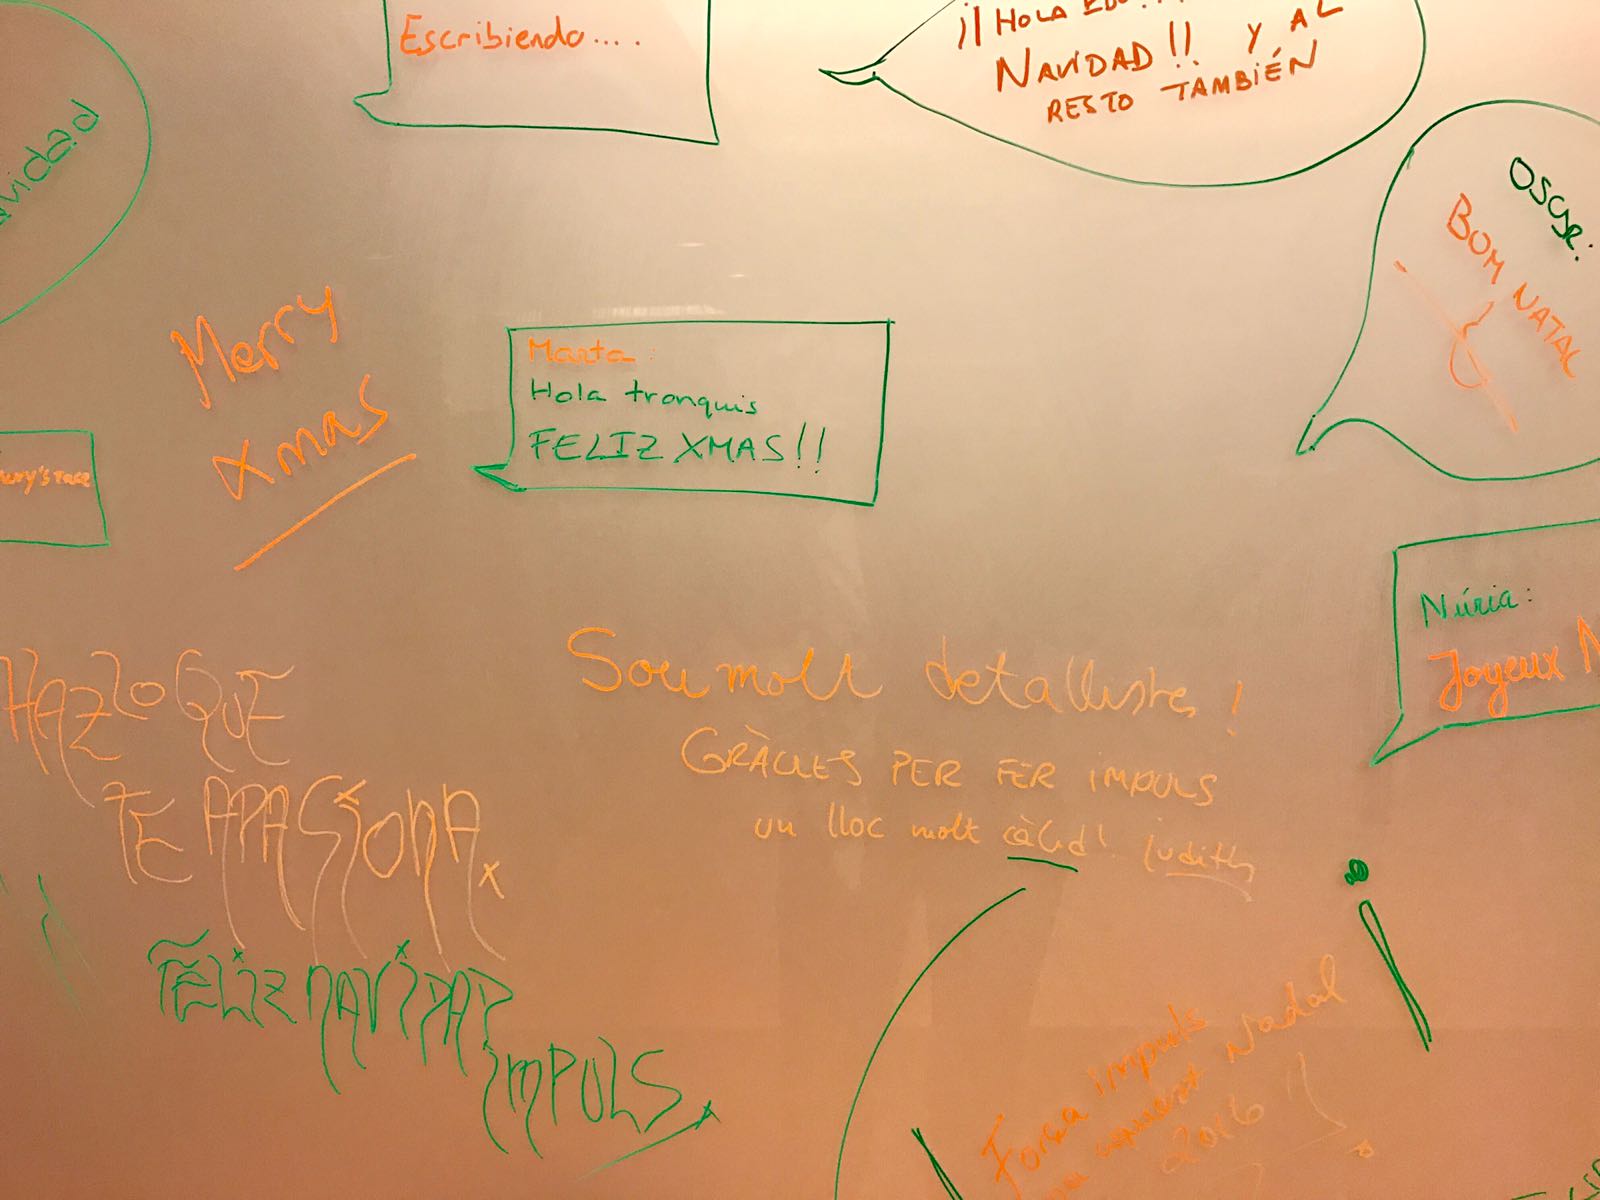 Escribiendo....
¡¡HOLA
NAVIDAD!! Y AL
RESTO TAMBIÉN
OSCAR:
BOM NATAL
Merry
Xmas
Marta:
Hola tronquis
FELIZ XMAS!!
Núria:
Joyeux N
HAZ LO QUE
TE APASSIONA
FELIZ NAVIDAD
IMPULS
Sou molt detallistes!
GRÀCIES PER FER IMPULS
un lloc molt càlid! Judith
Força impuls
Nadal
2016!!